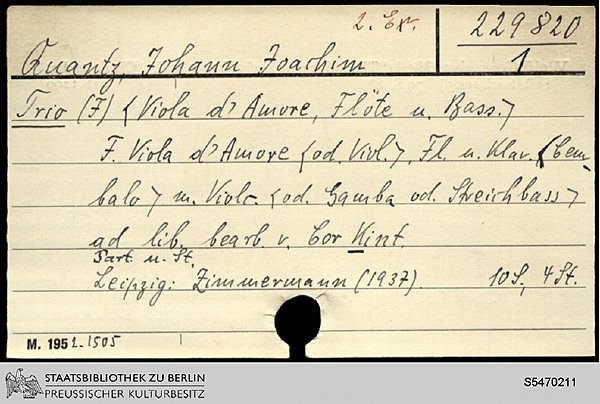 2. Ex.
229820
1
Quantz, Johann Joachim
Trio (F) <Viola d'Amore, Flöte u. Bass.>
F. Viola d'Amore <od. Viol.>, Fl. u. Klav. <Cem-
balo> m. Violc. <od. Gamba od. Streichbass>
ad lib. bearb. v. Cor Kint.
Part. u. St.
Leipzig: Zimmermann (1937). 10 S., 4 St.
M. 1951.1505
STAATSBIBLIOTHEK ZU BERLIN
PREUSSISCHER KULTURBESITZ
S5470211